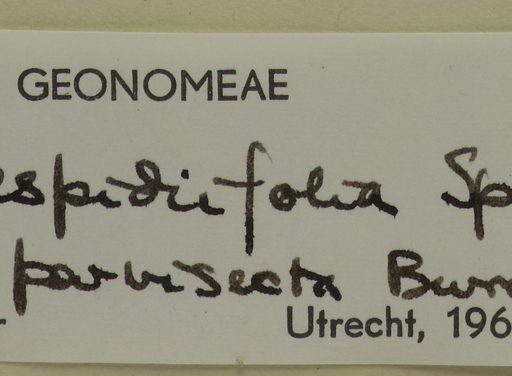 GEONOMEAE
aspidiifolia Sp
parvisecta Burr
Utrecht, 196